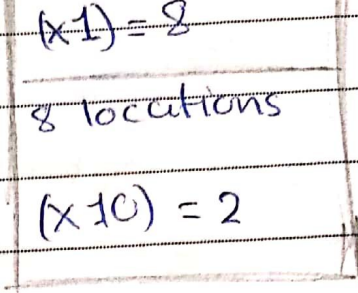 (x1) = 8
8 locations
(x10) = 2